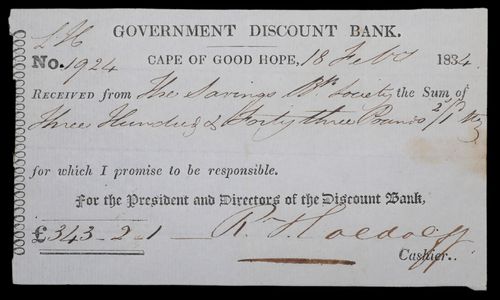 GOVERNMENT DISCOUNT BANK.
No. 1924 CAPE OF GOOD HOPE, 18 Feby 1834.
RECEIVED from The Savings Bk Society the Sum of
Three Hundred & Forty three Pounds 2/1
for which I promise to be responsible.
For the President and Directors of the Discount Bank,
£343-2-1
Cashier.